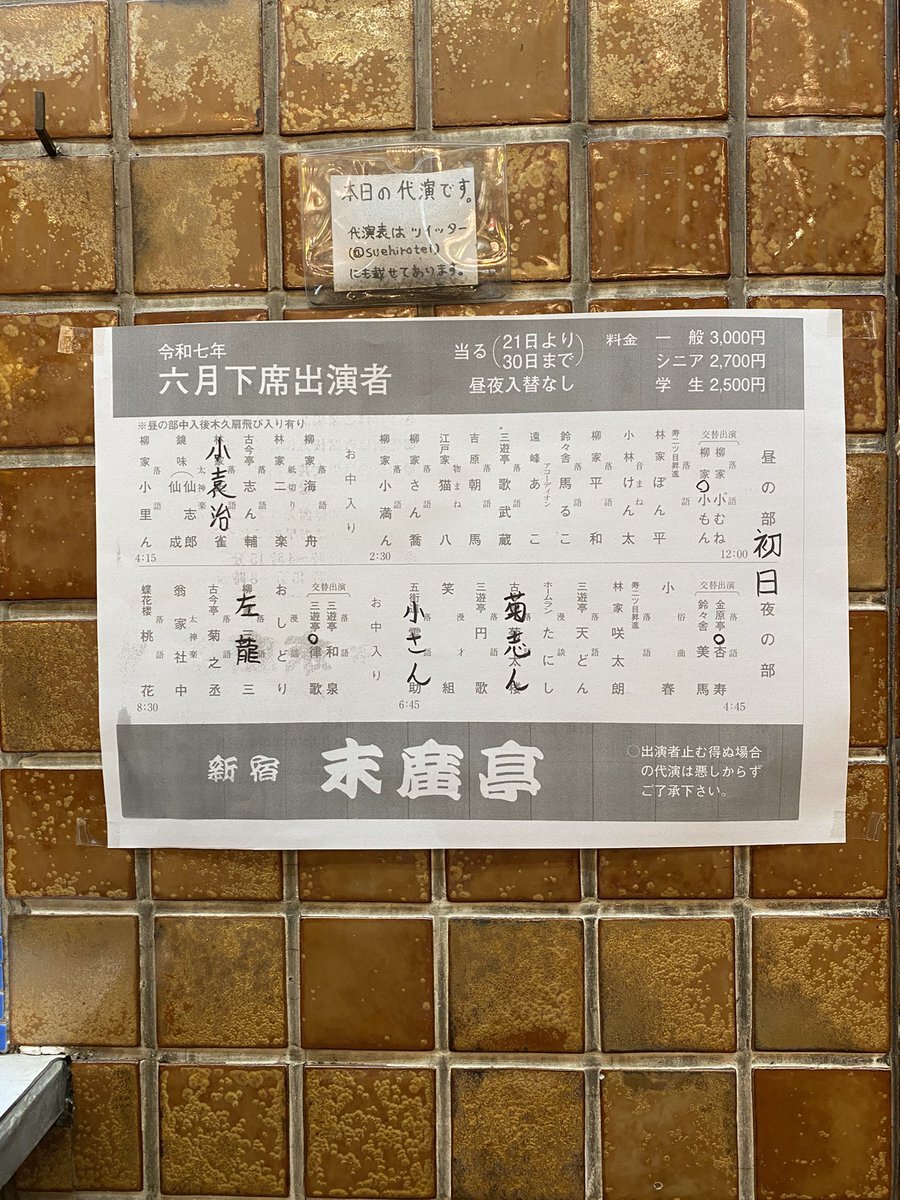 本日の代演です。
代演表はツイッター
(@suehirotei)
にも載せてあります。
令和七年
六月下席出演者
当る(21日より
30日まで)
昼夜入替なし
料金 一般 3,000円
シニア 2,700円
学生 2,500円
※昼の部中入後木久扇飛び入り有り
昼の部
初日
交替出演
落語 柳家小むね
落語 柳家○小もん
12:00
寿二ツ目昇進
落語 林家ぽん平
音まね 小林けん太
落語 柳家平和
落語 鈴々舎馬るこ
アコーディオン 遠峰あこ
落語 三遊亭歌武蔵
落語 吉原朝馬
物まね 江戸家猫八
落語 柳家さん喬
落語 柳家小満ん
2:30
お中入り
落語 柳家海舟
紙切り 林家二楽
落語 古今亭志ん輔
小袁治
雀
太神楽 鏡味仙志郎
仙成
落語 柳家小里ん
4:15
夜の部
交替出演
落語 金原亭○杏寿
落語 鈴々舎美馬
4:45
俗曲 小春
寿二ツ目昇進
落語 林家咲太朗
落語 三遊亭天どん
漫談 ホームランたにし
菊志ん
落語 三遊亭円歌
漫才 笑組
小さん
助
6:45
お中入り
交替出演
落語 三遊亭和泉
落語 三遊亭○律歌
漫談 おしどり
左龍
落語 古今亭菊之丞
太神楽 翁家社中
落語 蝶花楼桃花
8:30
新宿 末廣亭
○出演者止む得ぬ場合
の代演は悪しからず
ご了承下さい。